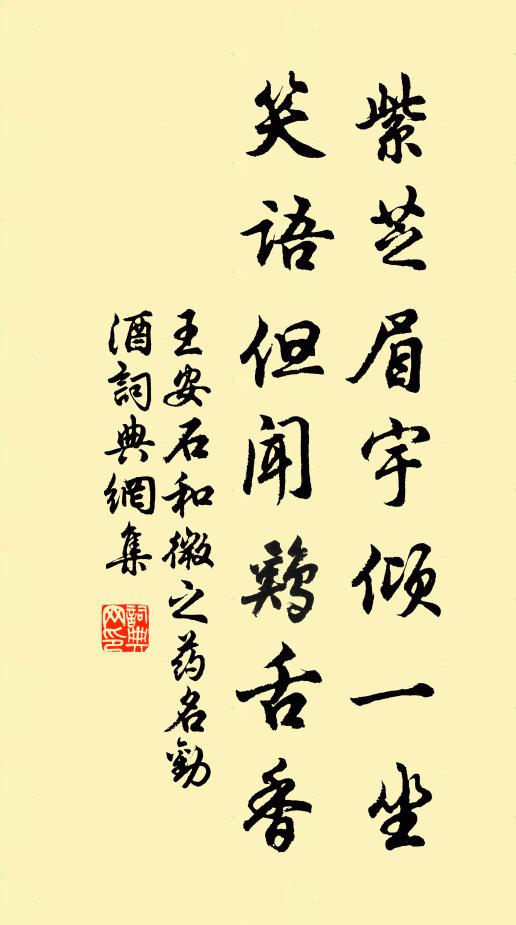 紫芝眉宇倾一坐
笑语但闻鸡舌香
王安石和微之药名勸
酒詞典網集
詞典
网印